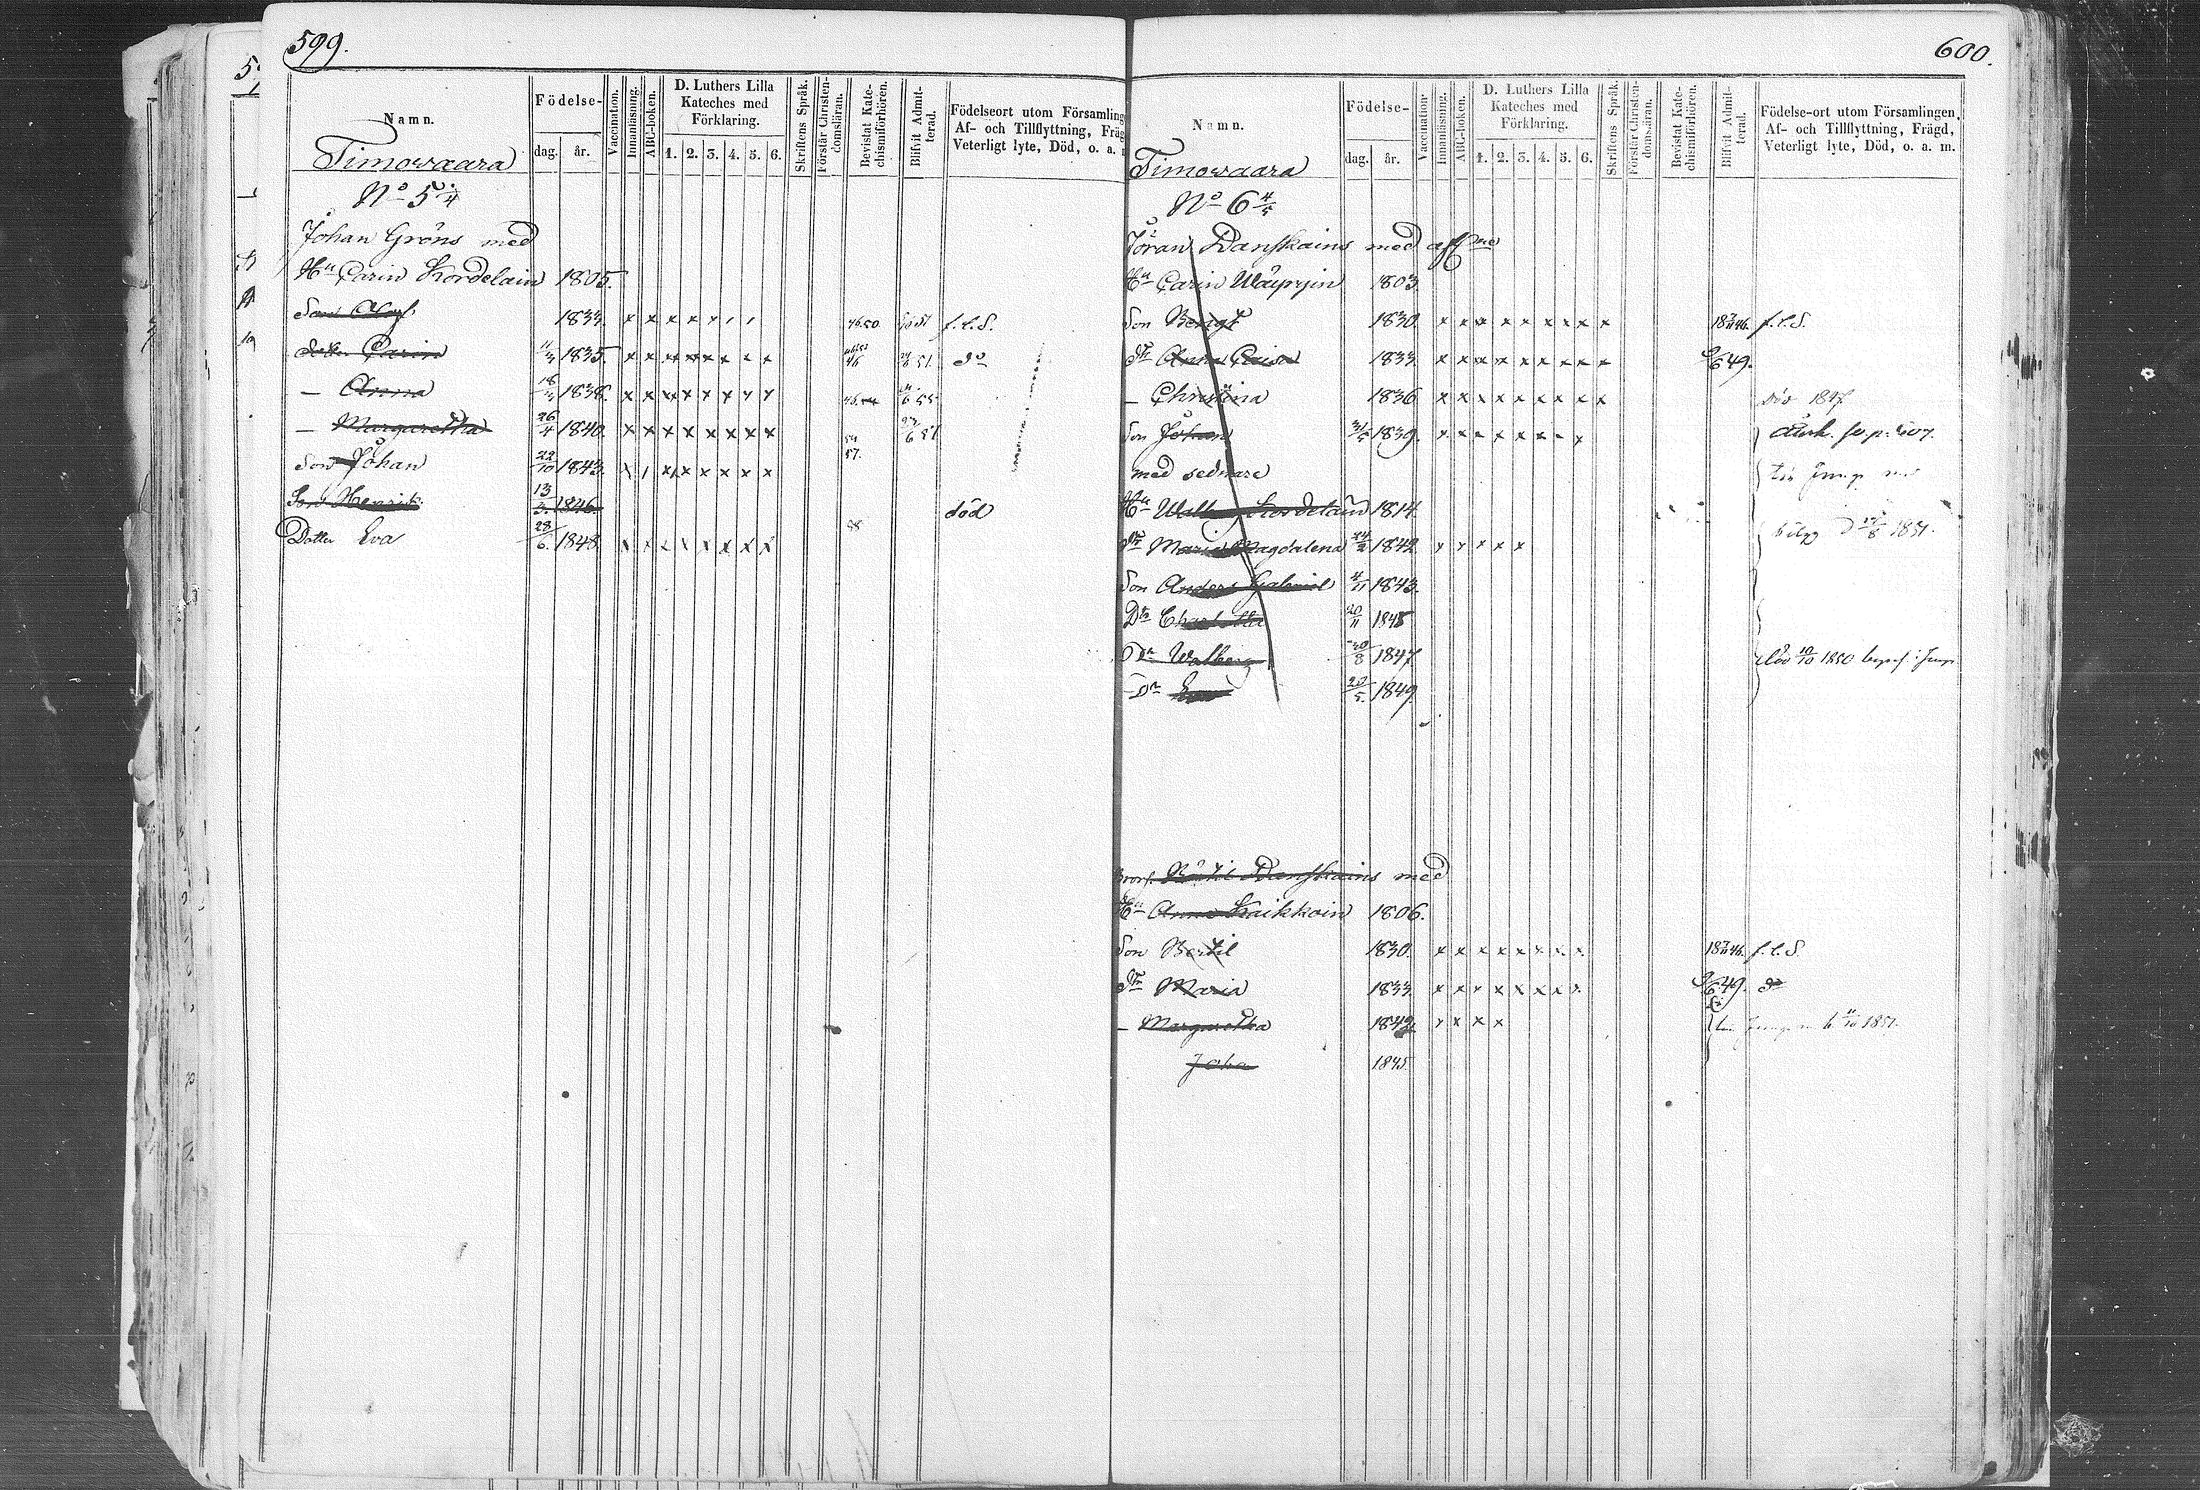 599.
Namn. Födelse- dag. år. Vaccination. Innanläsning. ABC-boken. D. Luthers Lilla Kateches med Förklaring. 1. 2. 3. 4. 5. 6. Skriftens Språk. Förstår Christendomsläran. Bevistat Katechismiförhören. Blifvit Admitterad. Födelseort utom Församling Af- och Tillflyttning, Fräg Veterligt lyte, Död, o. a.
Timowaara
No 5 1/4
Johan Gröns med
Hu Carin Kordelain 1805.
Son Olof 1833. x x x x x 46.50. 51 f. l. S.
Carin 1835. x x x x x x x x 51. do
— Anna 18/3 1838. x x x x x x x x 55
— Margaretha 26/4 1840. x x x x x x x x 57
Son Johan 22/10 1843. x x x x x x x 57.
Son Henrik 13/3 1846. död
Dotter Eva 28/6 1848. x x x x x x x x 58
600.
Namn. Födelse- dag. år. Vaccination. Innanläsning. ABC-boken. D. Luthers Lilla Kateches med Förklaring. 1. 2. 3. 4. 5. 6. Skriftens Språk. Förstår Christendomsläran. Bevistat Katechismiförhören. Blifvit Admitterad. Födelse-ort utom Församlingen, Af- och Tillflyttning, Frägd, Veterligt lyte, Död, o. a. m.
Timowaara
No 6 4/5
Jöran Danskains med
Hu Carin Wäyryin 1803
Son Bengt 1830. x x x x x x x x x 18 7/11 46. f. l. S.
Dr Anna Caisa 1833. x x x x x x x x x 9/6 49.
— Christina 1836 x x x x x x x x x död 1847
Son Johan 31/5 1839. x x x x x x x x p. 607.
med sednare
Hu Walborg Kordelain 1814.
Dr Maria Magdalena 24/2 1842 x x x x x 1851.
Son Anders Gabriel 4/11 1843.
Dr Charlotta 20/11 1845
Dr Walborg 20/8 1847 död 10/10 1850
Dr Eva 20/5 1849.
Bror. Danskains med
Hu Anna Kaikkoin 1806.
Son Bertil 1830. x x x x x x x x 18 7/11 46. f. l. S.
Dr Maria 1833. x x x x x x x x 9/6 49. do
— Margaretha 1842. x x x x 1851.
Joha 1845